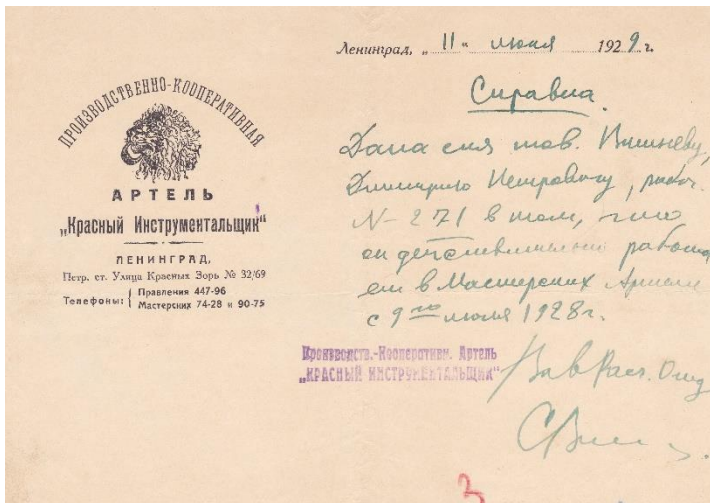 ПРОИЗВОДСТВЕННО-КООПЕРАТИВНАЯ
АРТЕЛЬ
„Красный Инструментальщик"
ЛЕНИНГРАД,
Петр. ст. Улица Красных Зорь № 32/69
Телефоны: { Правления 447-96
Мастерских 74-28 и 90-75
Ленинград, „11" июня 1929 г.
Справка.
Дана сия тов. Вишневу,
Дмитрию Петровичу, рабоч.
N- 271 в том, что
он действительно работа
ет в Мастерских Артели
с 9го июля 1928 г.
Производств.-Кооперативн. Артель
„КРАСНЫЙ ИНСТРУМЕНТАЛЬЩИК"
Зав Расч. Отд
3